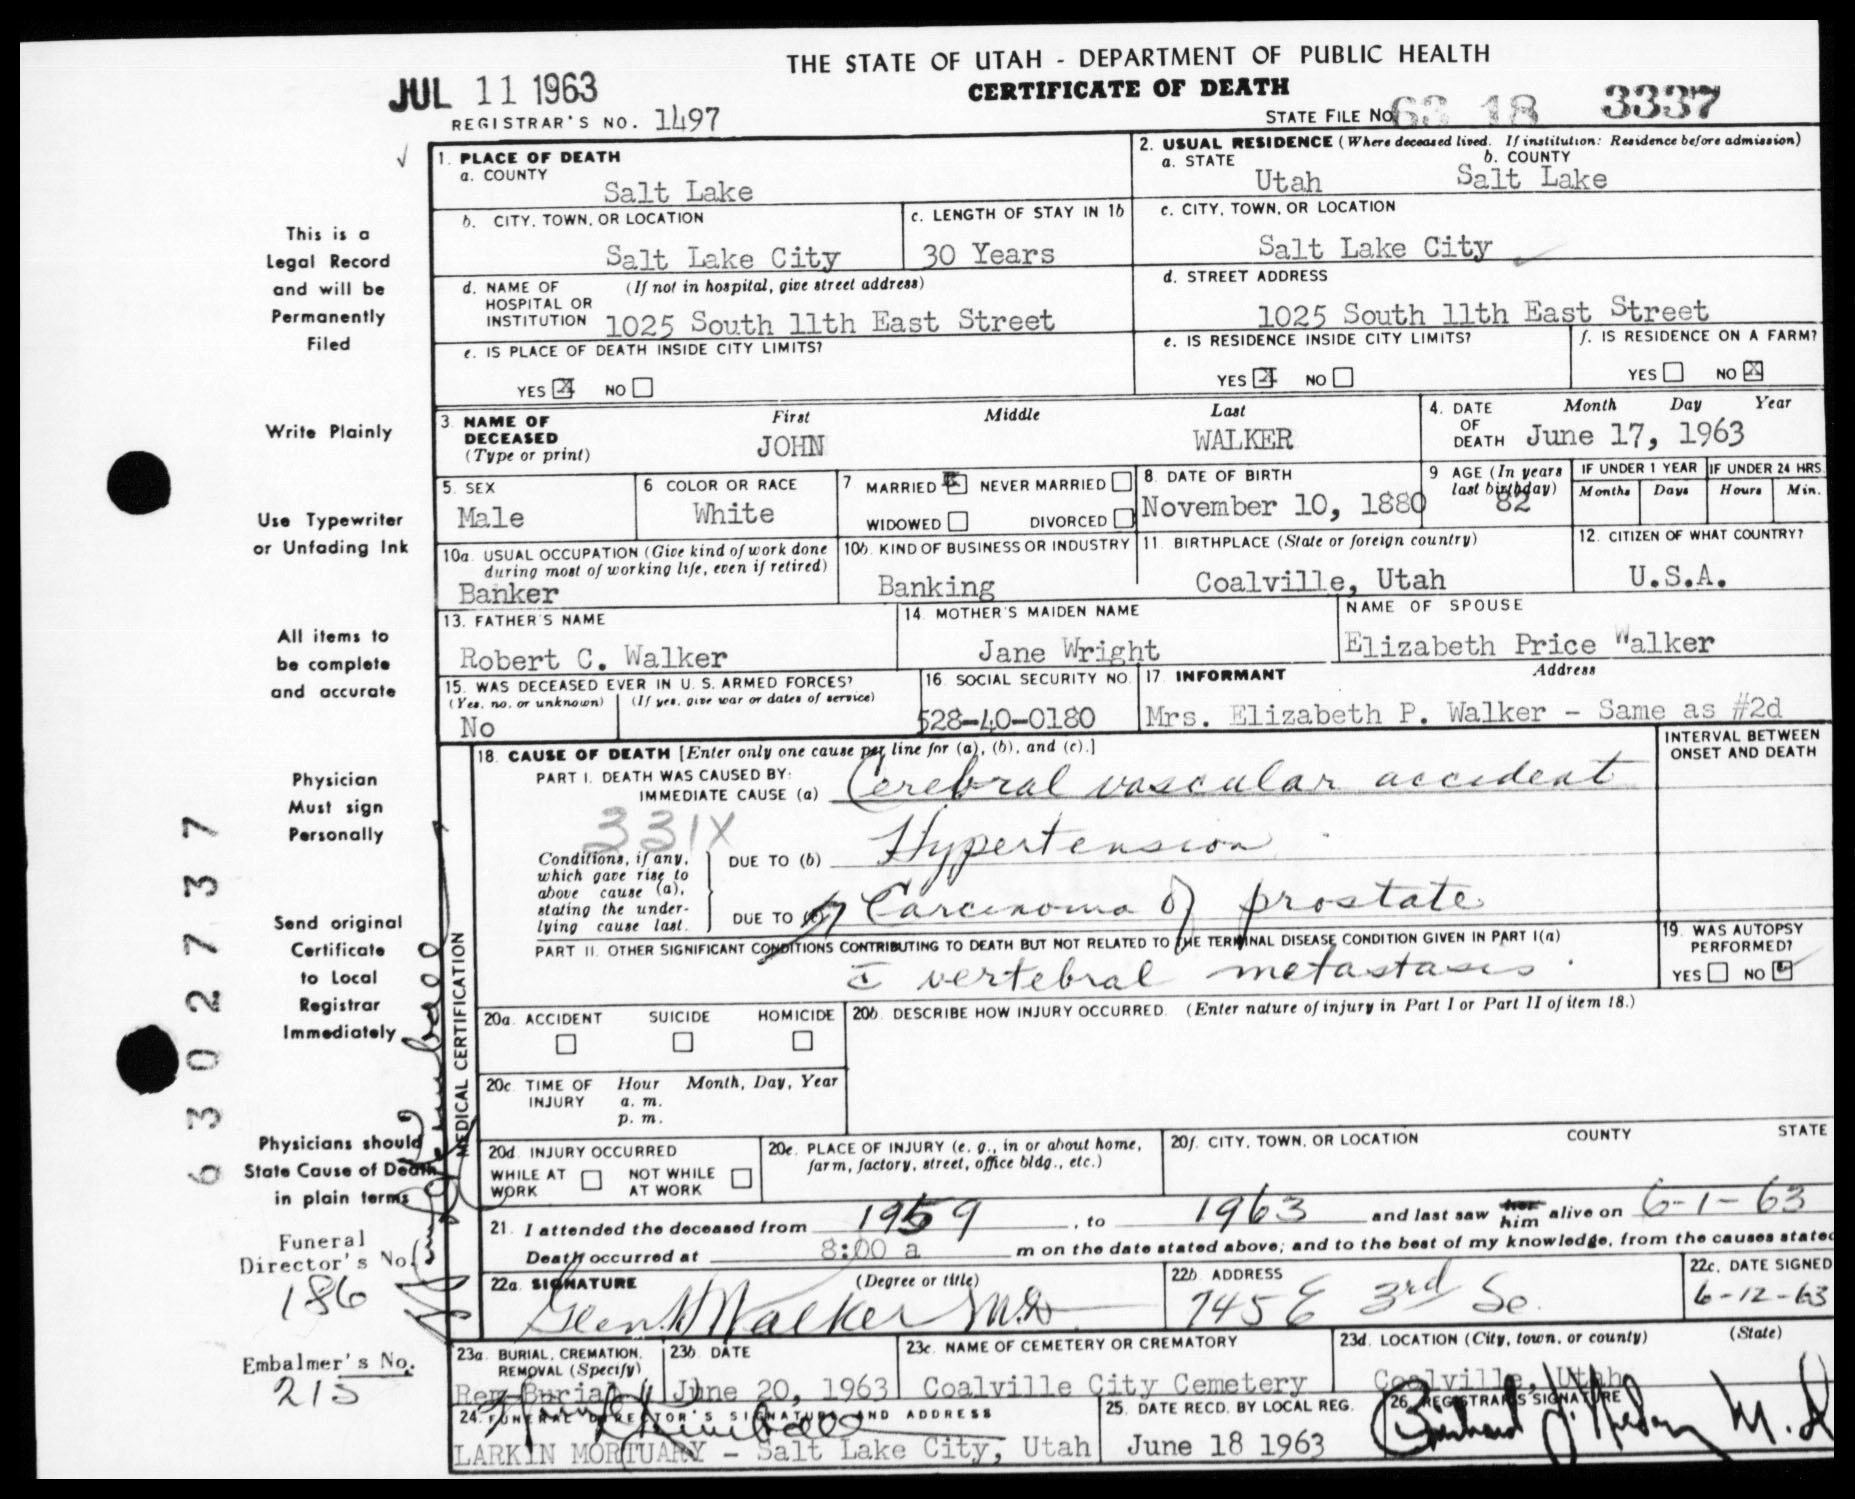 THE STATE OF UTAH - DEPARTMENT OF PUBLIC HEALTH
JUL 11 1963
CERTIFICATE OF DEATH
REGISTRAR'S NO. 1497
STATE FILE NO. 63 18 3337
1. PLACE OF DEATH
a. COUNTY
Salt Lake
2. USUAL RESIDENCE (Where deceased lived. If institution: Residence before admission)
a. STATE
Utah
b. COUNTY
Salt Lake
b. CITY, TOWN, OR LOCATION
Salt Lake City
c. LENGTH OF STAY IN 1b
30 Years
c. CITY, TOWN, OR LOCATION
Salt Lake City
d. NAME OF HOSPITAL OR INSTITUTION
(If not in hospital, give street address)
1025 South 11th East Street
d. STREET ADDRESS
1025 South 11th East Street
e. IS PLACE OF DEATH INSIDE CITY LIMITS?
YES X NO
e. IS RESIDENCE INSIDE CITY LIMITS?
YES X NO
f. IS RESIDENCE ON A FARM?
YES NO X
3. NAME OF DECEASED (Type or print)
First Middle Last
JOHN WALKER
4. DATE OF DEATH
Month Day Year
June 17, 1963
5. SEX
Male
6 COLOR OR RACE
White
7 MARRIED X NEVER MARRIED
WIDOWED DIVORCED
8. DATE OF BIRTH
November 10, 1880
9 AGE (In years last birthday)
82
IF UNDER 1 YEAR
Months Days
IF UNDER 24 HRS.
Hours Min.
10a. USUAL OCCUPATION (Give kind of work done during most of working life, even if retired)
Banker
10b. KIND OF BUSINESS OR INDUSTRY
Banking
11. BIRTHPLACE (State or foreign country)
Coalville, Utah
12. CITIZEN OF WHAT COUNTRY?
U.S.A.
13. FATHER'S NAME
Robert C. Walker
14. MOTHER'S MAIDEN NAME
Jane Wright
NAME OF SPOUSE
Elizabeth Price Walker
15. WAS DECEASED EVER IN U. S. ARMED FORCES?
(Yes, no, or unknown) (If yes, give war or dates of service)
No
16. SOCIAL SECURITY NO.
528-40-0180
17. INFORMANT Address
Mrs. Elizabeth P. Walker - Same as #2d
18. CAUSE OF DEATH [Enter only one cause per line for (a), (b), and (c).]
INTERVAL BETWEEN ONSET AND DEATH
PART I. DEATH WAS CAUSED BY:
IMMEDIATE CAUSE (a) Cerebral vascular accident
331X
Conditions, if any, which gave rise to above cause (a), stating the underlying cause last.
DUE TO (b) Hypertension
DUE TO (c) Carcinoma of prostate
PART II. OTHER SIGNIFICANT CONDITIONS CONTRIBUTING TO DEATH BUT NOT RELATED TO THE TERMINAL DISEASE CONDITION GIVEN IN PART I(a)
c̄ vertebral metastases
19. WAS AUTOPSY PERFORMED?
YES NO
20a. ACCIDENT SUICIDE HOMICIDE
20b. DESCRIBE HOW INJURY OCCURRED. (Enter nature of injury in Part I or Part II of item 18.)
20c. TIME OF INJURY
Hour Month, Day, Year
a. m.
p. m.
20d. INJURY OCCURRED
WHILE AT WORK
NOT WHILE AT WORK
20e. PLACE OF INJURY (e. g., in or about home, farm, factory, street, office bldg., etc.)
20f. CITY, TOWN, OR LOCATION COUNTY STATE
21. I attended the deceased from 1959, to 1963 and last saw her him alive on 6-1-63
Death occurred at 8:00 a m on the date stated above; and to the best of my knowledge, from the causes stated
22a. SIGNATURE (Degree or title)
Glen Walker M.D.
22b. ADDRESS
745 E 3rd So.
22c. DATE SIGNED
6-12-63
23a. BURIAL, CREMATION, REMOVAL (Specify)
Rem-Burial
23b. DATE
June 20, 1963
23c. NAME OF CEMETERY OR CREMATORY
Coalville City Cemetery
23d. LOCATION (City, town, or county) (State)
Coalville, Utah
24. FUNERAL DIRECTOR'S SIGNATURE AND ADDRESS
LARKIN MORTUARY - Salt Lake City, Utah
25. DATE RECD. BY LOCAL REG.
June 18 1963
26. REGISTRAR'S SIGNATURE
M.D.
MEDICAL CERTIFICATION
This is a
Legal Record
and will be
Permanently
Filed
Write Plainly
Use Typewriter
or Unfading Ink
All items to
be complete
and accurate
Physician
Must sign
Personally
Send original
Certificate
to Local
Registrar
Immediately
Physicians should
State Cause of Death
in plain terms
Funeral
Director's No.
186
Embalmer's No.
215
6302737